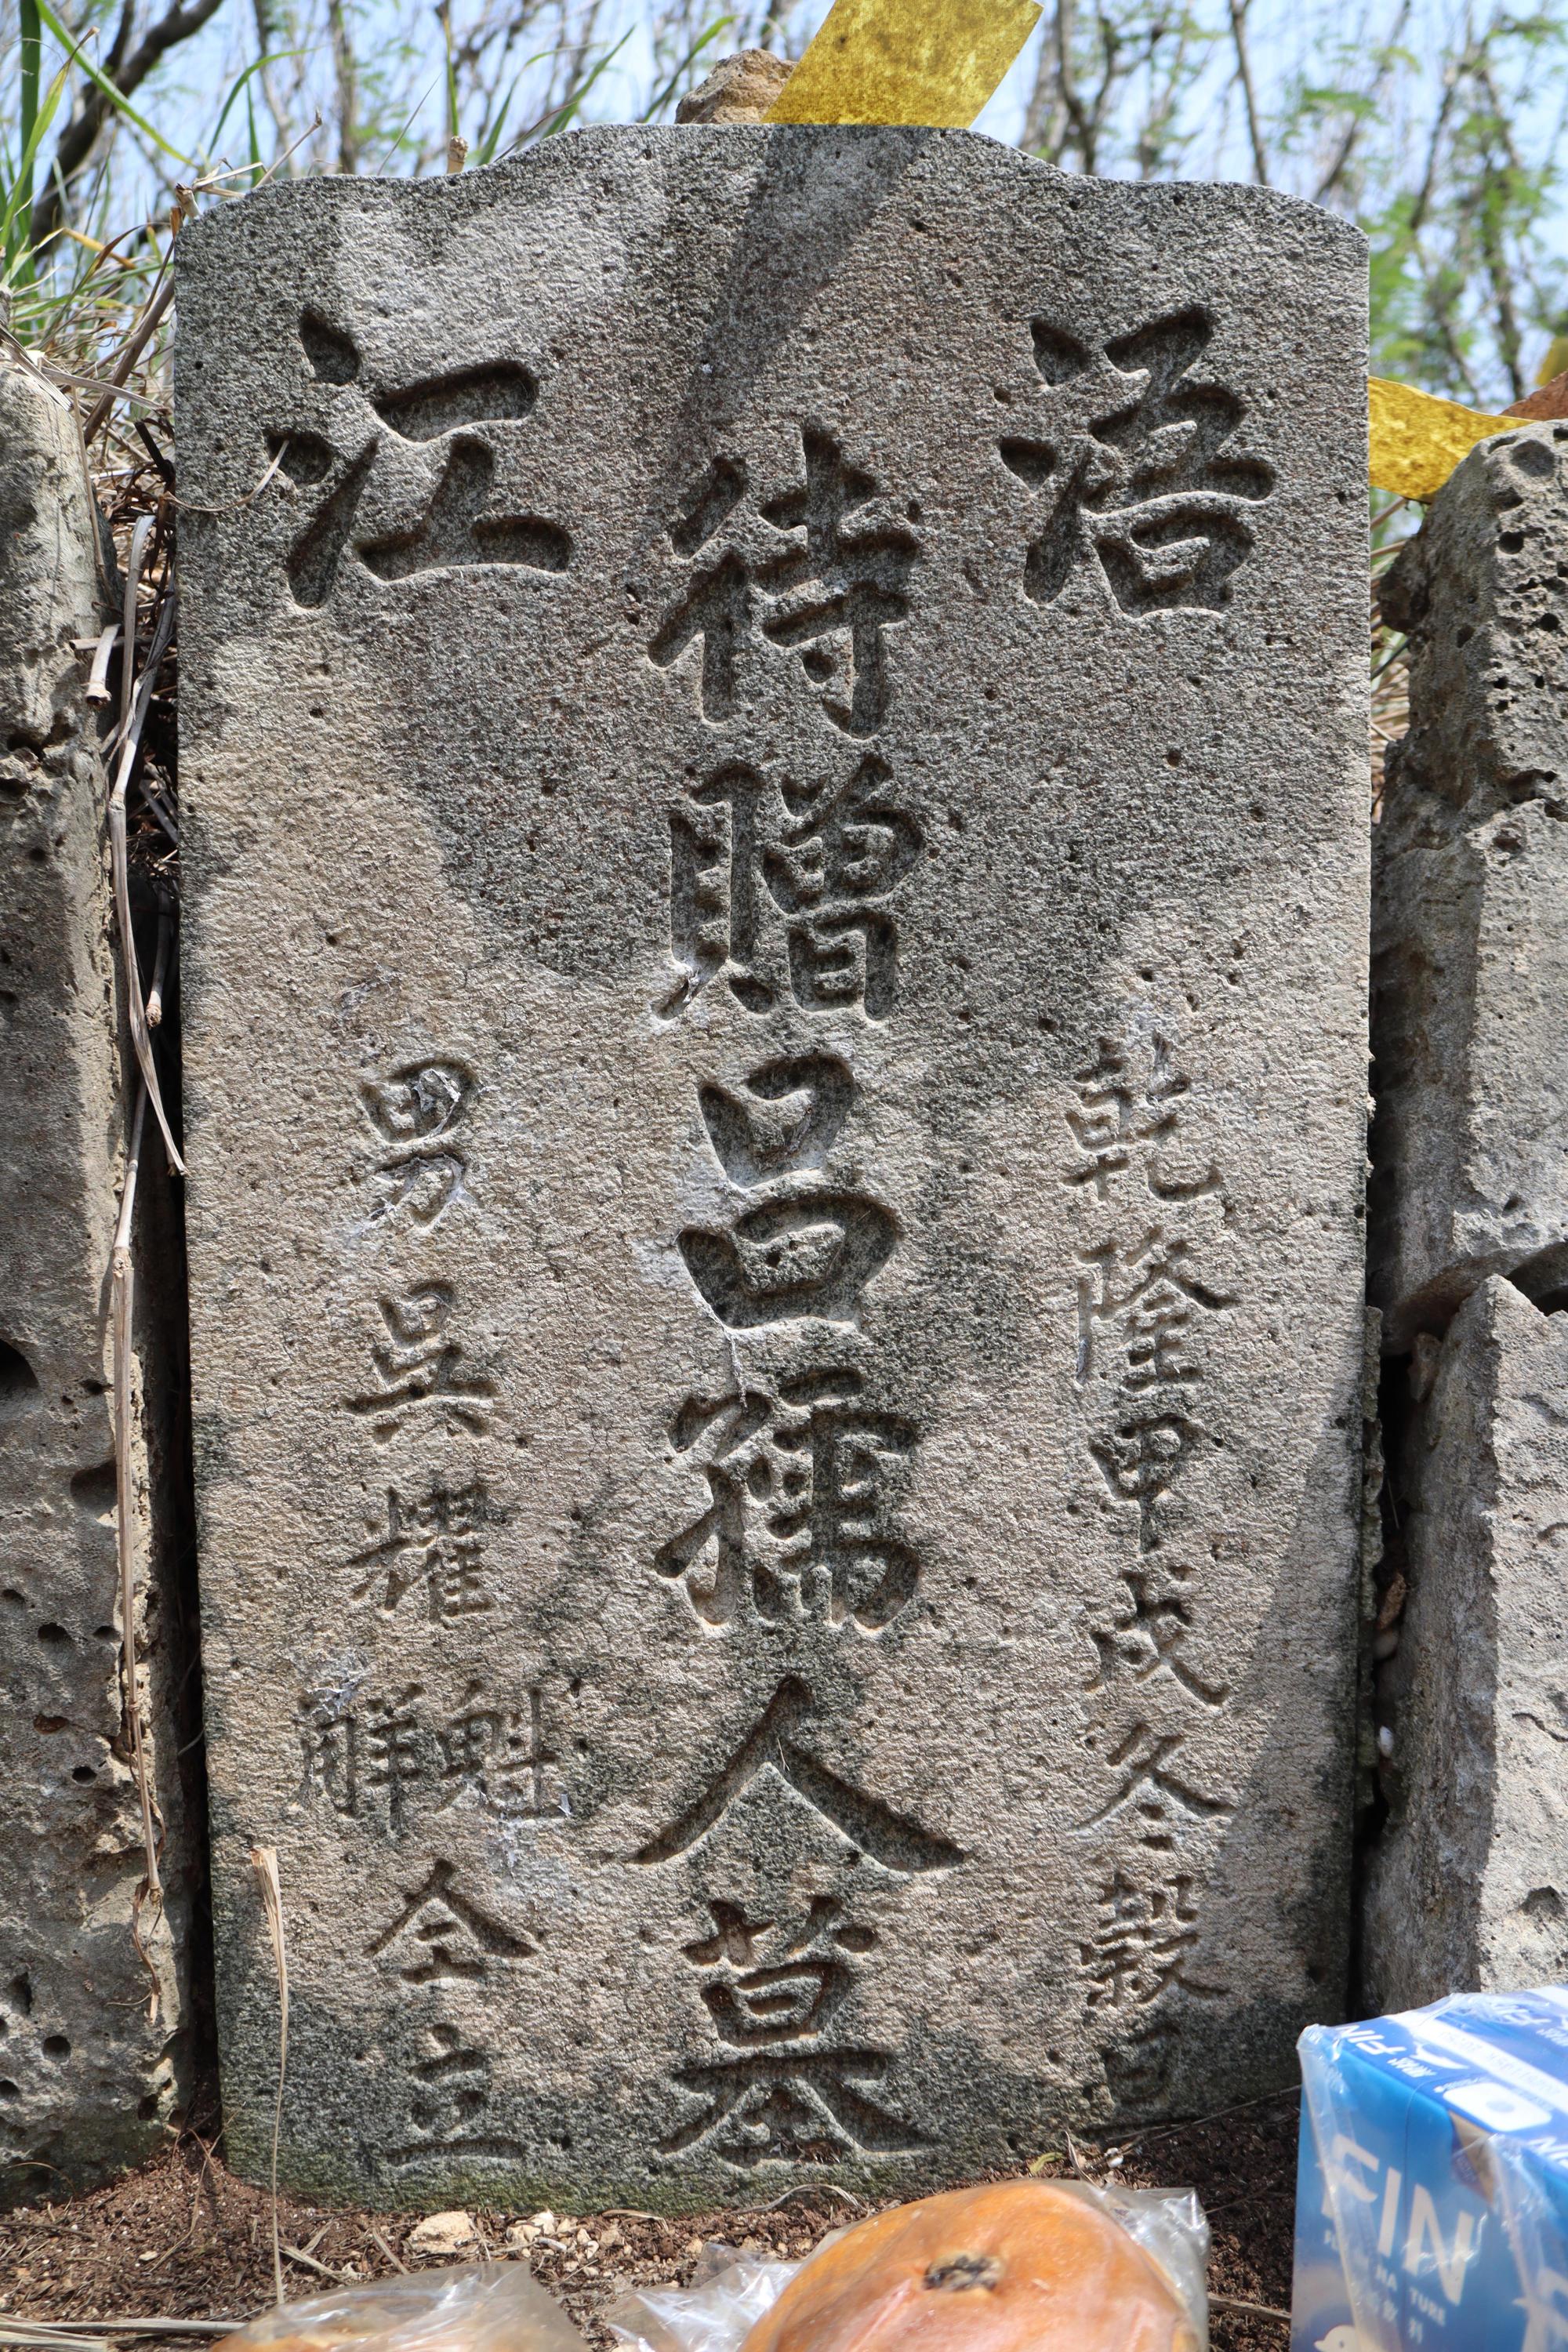 浯江
乾隆甲戌冬穀旦
待贈呂孺人墓
男吳耀魁觧仝立
FIN